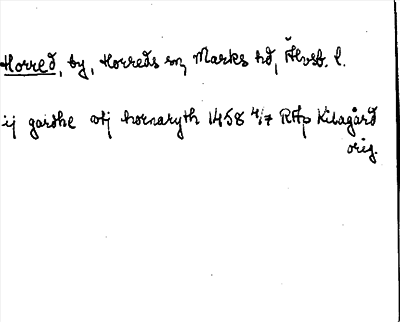 Horred, by, Horreds sn, Marks hd, Älvsb. l.
ij gardhe otj hornaryth 1458 4/7 RAp Kilagård
orig.